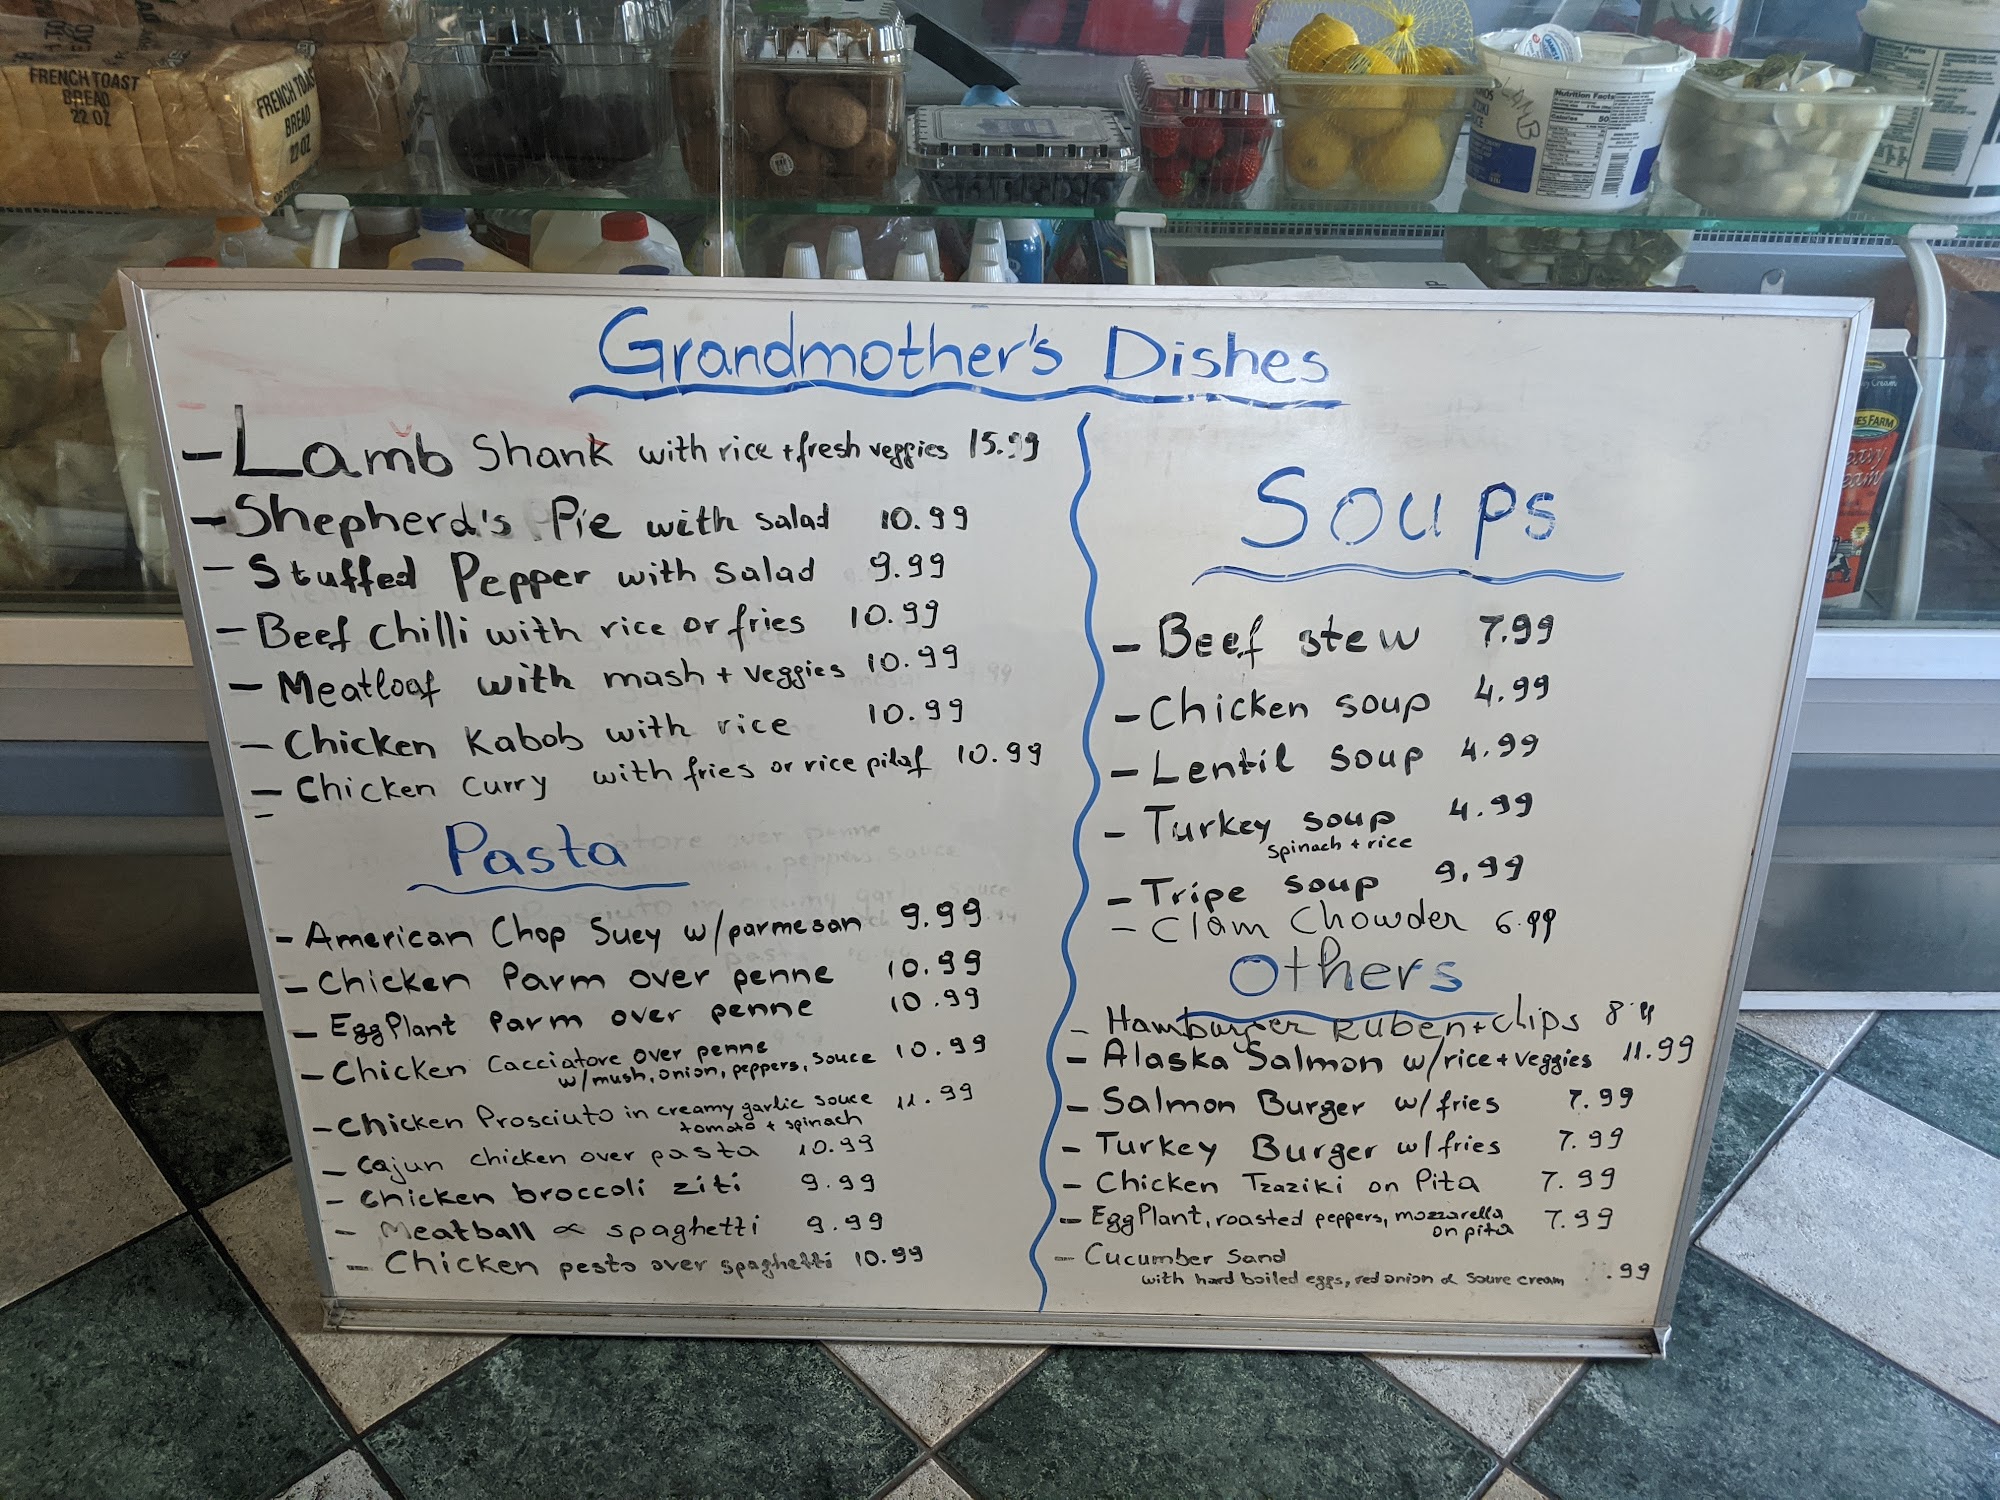 FRENCH TOAST
BREAD
22 OZ
FRENCH TOAST
BREAD
22 OZ
Nutrition Facts
Calories
LAMB
Nutrition Facts
Grandmother's Dishes
- Lamb Shank with rice + fresh veggies 15.99
- Shepherd's Pie with salad 10.99
- Stuffed Pepper with Salad 9.99
- Beef chilli with rice or fries 10.99
- Meatloaf with mash + veggies 10.99
- Chicken Kabob with rice 10.99
- Chicken Curry with fries or rice pilaf 10.99
Pasta
- American Chop Suey w/parmesan 9.99
- Chicken Parm over penne 10.99
- EggPlant Parm over penne 10.99
- Chicken Cacciatore over penne 10.99
w/mush, onion, peppers, sauce
- Chicken Prosciuto in creamy garlic sauce 11.99
tomato + spinach
- Cajun chicken over pasta 10.99
- Chicken broccoli ziti 9.99
- Meatball & spaghetti 9.99
- Chicken pesto over spaghetti 10.99
Soups
- Beef stew 7.99
- Chicken soup 4.99
- Lentil soup 4.99
- Turkey soup 4.99
spinach + rice
- Tripe soup 9.99
- Clam Chowder 6.99
Others
- Hamburger Ruben + chips
- Alaska Salmon w/rice + veggies 11.99
- Salmon Burger w/ fries 7.99
- Turkey Burger w/ fries 7.99
- Chicken Tzaziki on Pita 7.99
- EggPlant, roasted peppers, mozzarella 7.99
on pita
- Cucumber Sand
with hard boiled eggs, red onion & soure cream .99